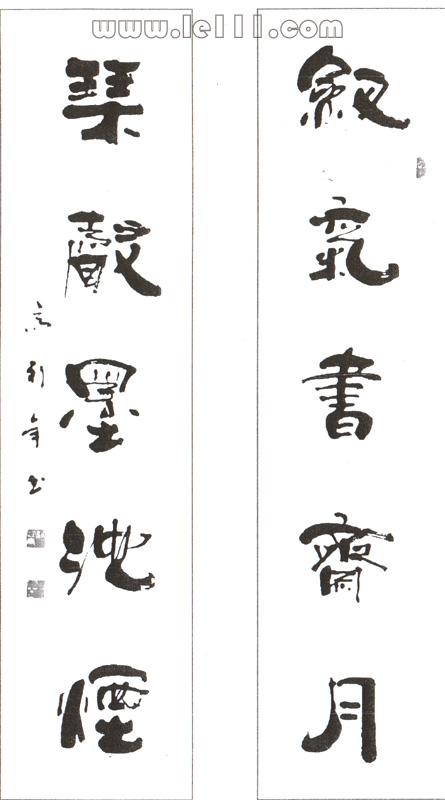 www.le111.com
劍氣書齋月
琴聲墨池煙